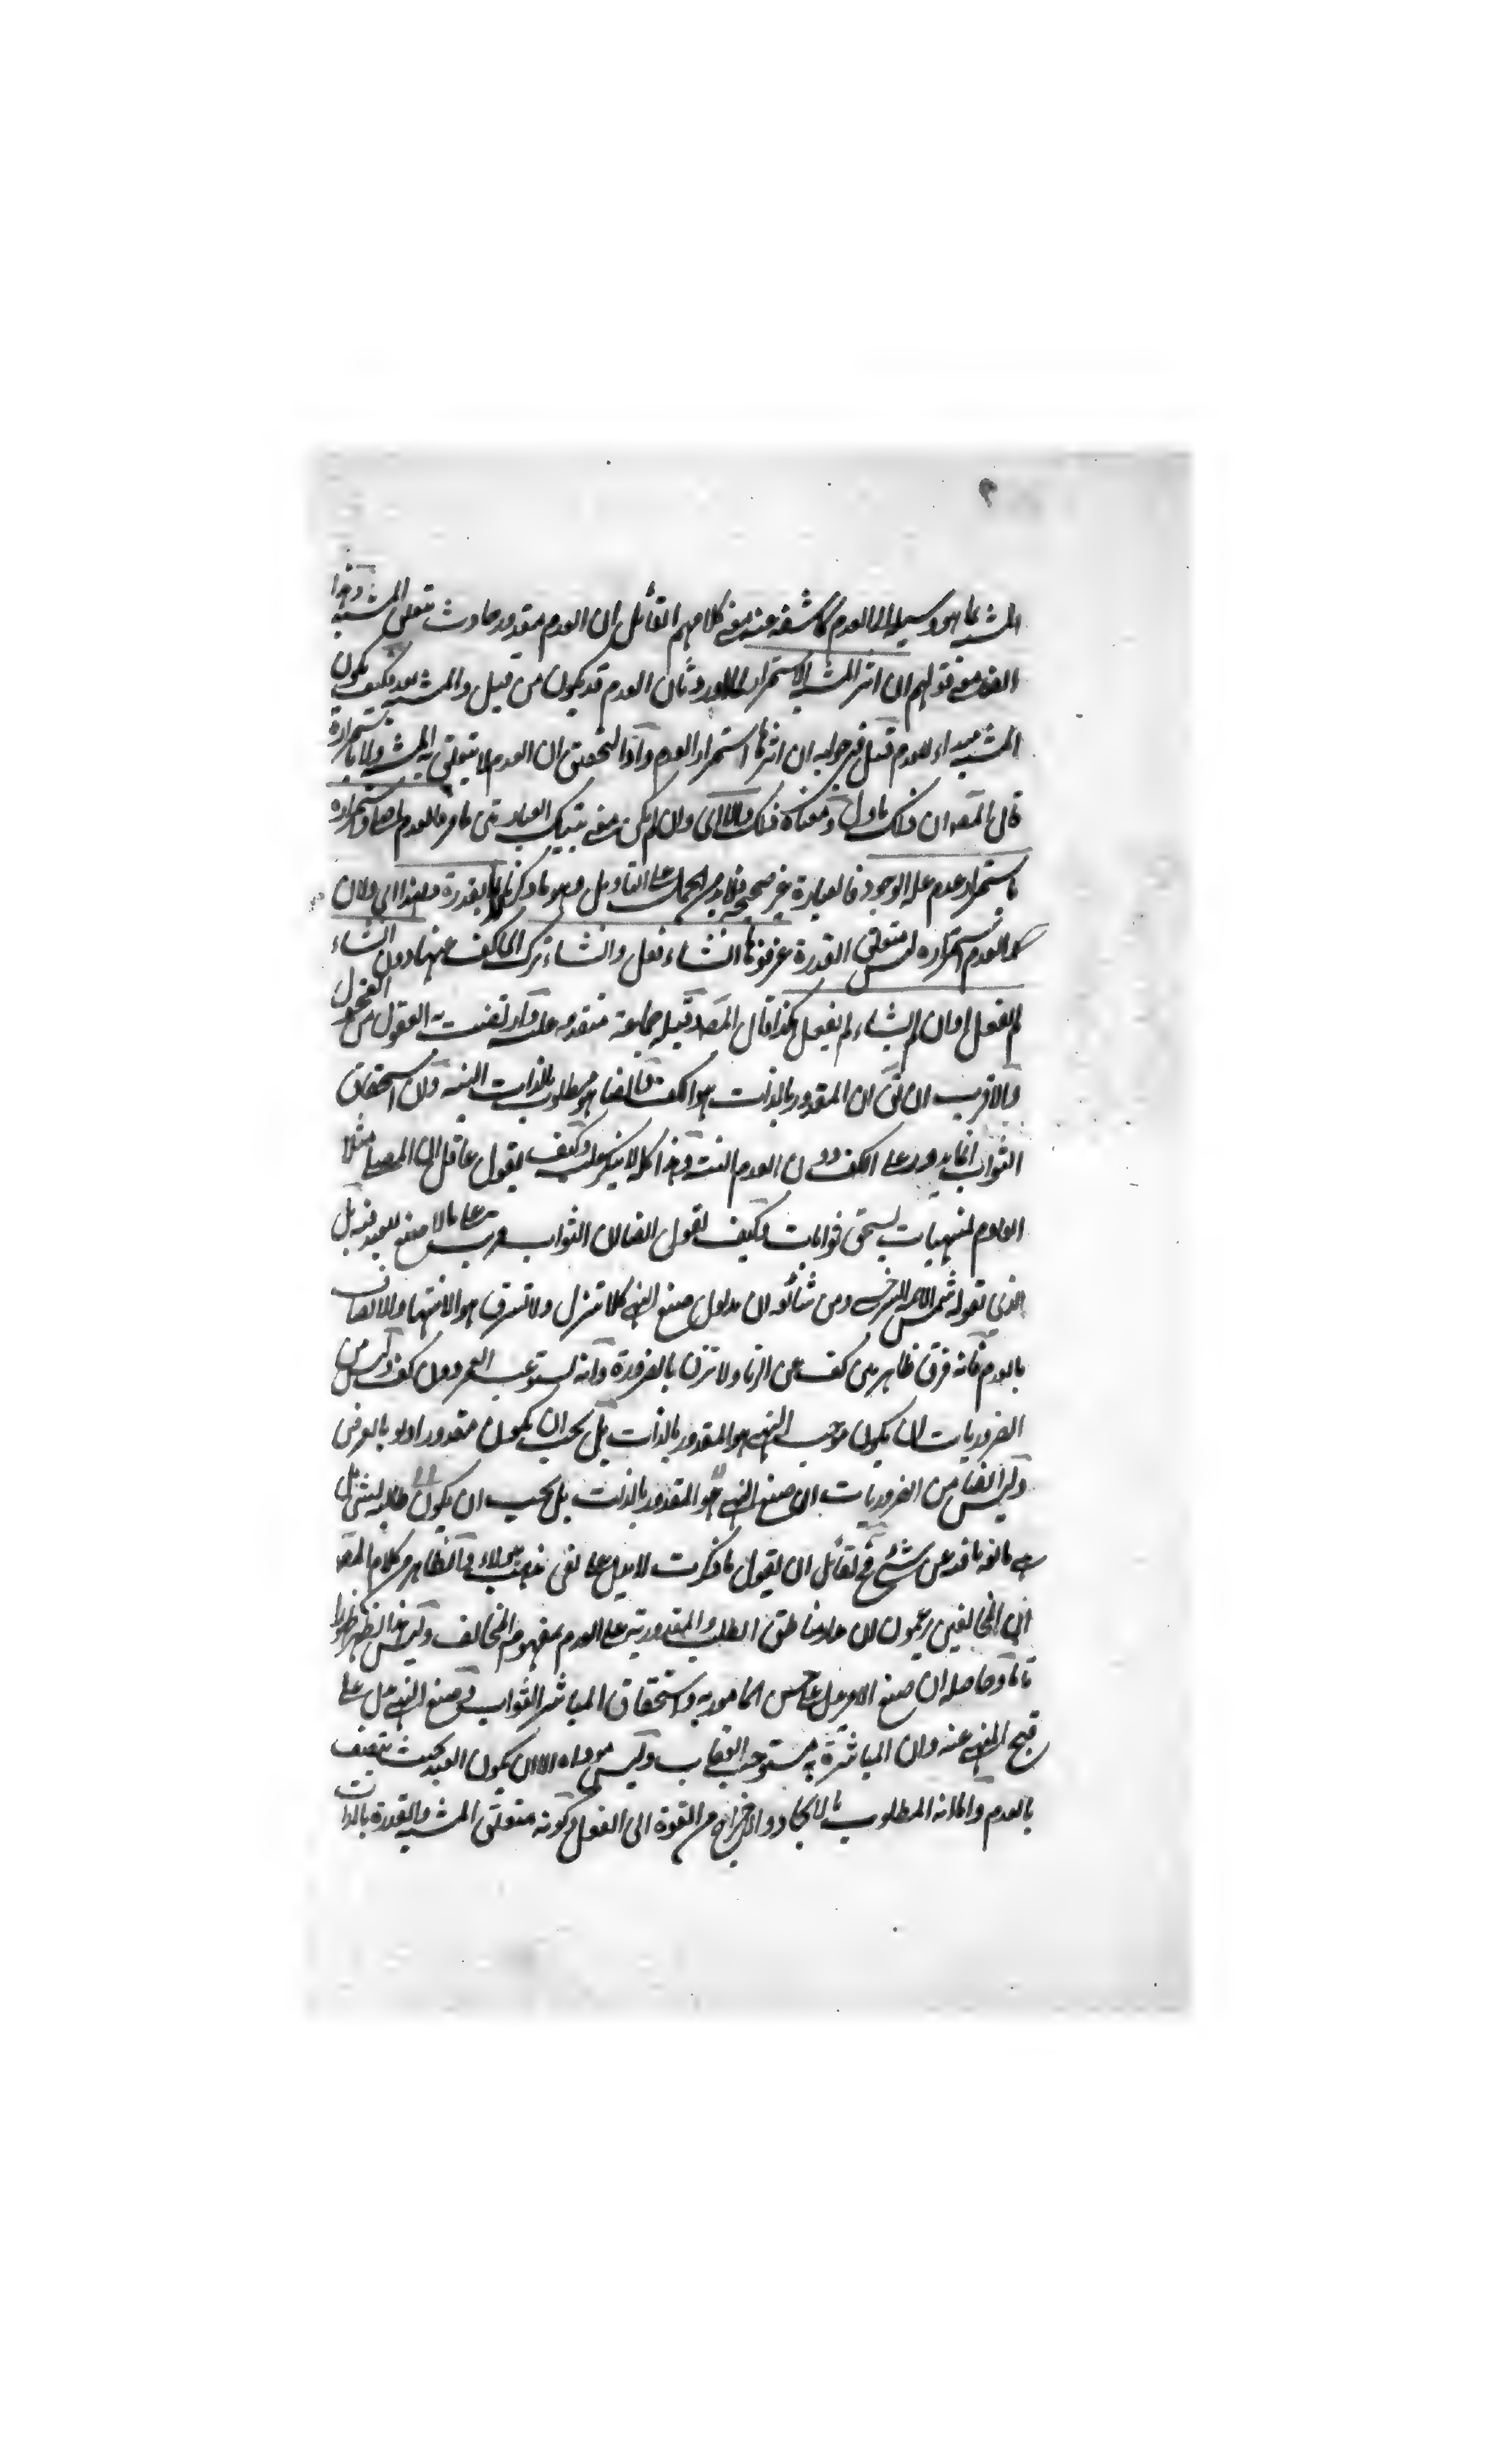 ٢
المشية بما هو وسيلة الى العدم كاشفة عنه معنى كلامهم القائل ان العدم مقدور حادث متعلق المشية وهذا
ايضا معنى قولهم ان اثر المشية الاستمرار العدم قد يكون من قبل والمشية بعد فكيف يكون
المشية مبداء للعدم قيل في جوابه ان اثرها استمرار العدم واذا التحقيق ان العدم لا يتعلق به المشية ولا باستمراره
قال المصـ ان ذلك ماول ومعناه ذلك والا اى وان لم يكن معنى تينك العبارتين ما مر فالعدم اصلا واستمراره
باستمرار عدم علة الوجود فالعبارة غير صحيحة فلا بد من الحمل على التاويل وهو ما ذكرنا بالقدرة ولهذا اى ولان
العدم استمراره ليس متعلق القدرة عرفوها ان شاء فعل وان شاء ترك اى كف عنها دون ان شاء
لم يفعل او ان لم يشاء لم يفعل هكذا قال المصـ وقبله جماعة متقدمة عليه وارتضت به العقول من الفحول
والاقرب ان يق ان المقدور بالذات هو الكف وايضا هو مطلوب بالذات البتة وان استحقاق
الثواب انما يدور على الكف دون العدم البتة وهذا كله لا ينكر عليه وكيف يقول عاقل ان المصلى مثلا
العادم لمنهيات يستحق ثوابات وكيف يقول ايضا ان الثواب مرتب على ما لا صنع للعبد فيه بل
الذى يقوله شمس الائمة السرخسى ومن شائعه ان مدلول صيغ النهى كلا تزن ولا تسرق هو الانتهاء والاتصاف
بالعدم فانه فرق ظاهر بين كف عن الزنا ولا تزن بالضرورة وانه يستوعب العمر دون كف وليس من
الضروريات ان يكون موجب النهى هو المقدور بالذات بل يجب ان يكون مقدورا ولو بالعرض
وليس ايضا من الضروريات ان صيغ النهى هو المقدور بالذات بل يجب ان يكون طالبة لشئ بل
هى مانعة عن شئ فح لقائل ان يقول ما ذكرت لا يدل على نفى مذهب هؤلاء والظاهر من كلام المصـ
ان المخالفين يزعمون ان الطلب والمقدورية على العدم بمفهومه المخالف وليس هذا لظهر ظهورا
تاما وحاصله ان صيغ الامر يدل على حسن المامور به واستحقاق المباشر الثواب وصيغ النهى يدل على
قبح المنهى عنه وان المباشرة به مستوجب العقاب وليس موداه الا ان يكون العبد بحيث يتصف
بالعدم واما انه المطلوب بالايجاد والاخراج من القوة الى الفعل وكونه متعلق المشية والقدرة بالذات